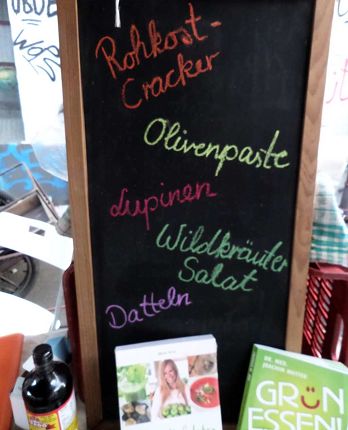 Rohkost-
Cracker
Olivenpaste
Lupinen
Wildkräuter
Salat
Datteln
DR. MED.
JOACHIM MUTTER
GRÜN
ESSEN!